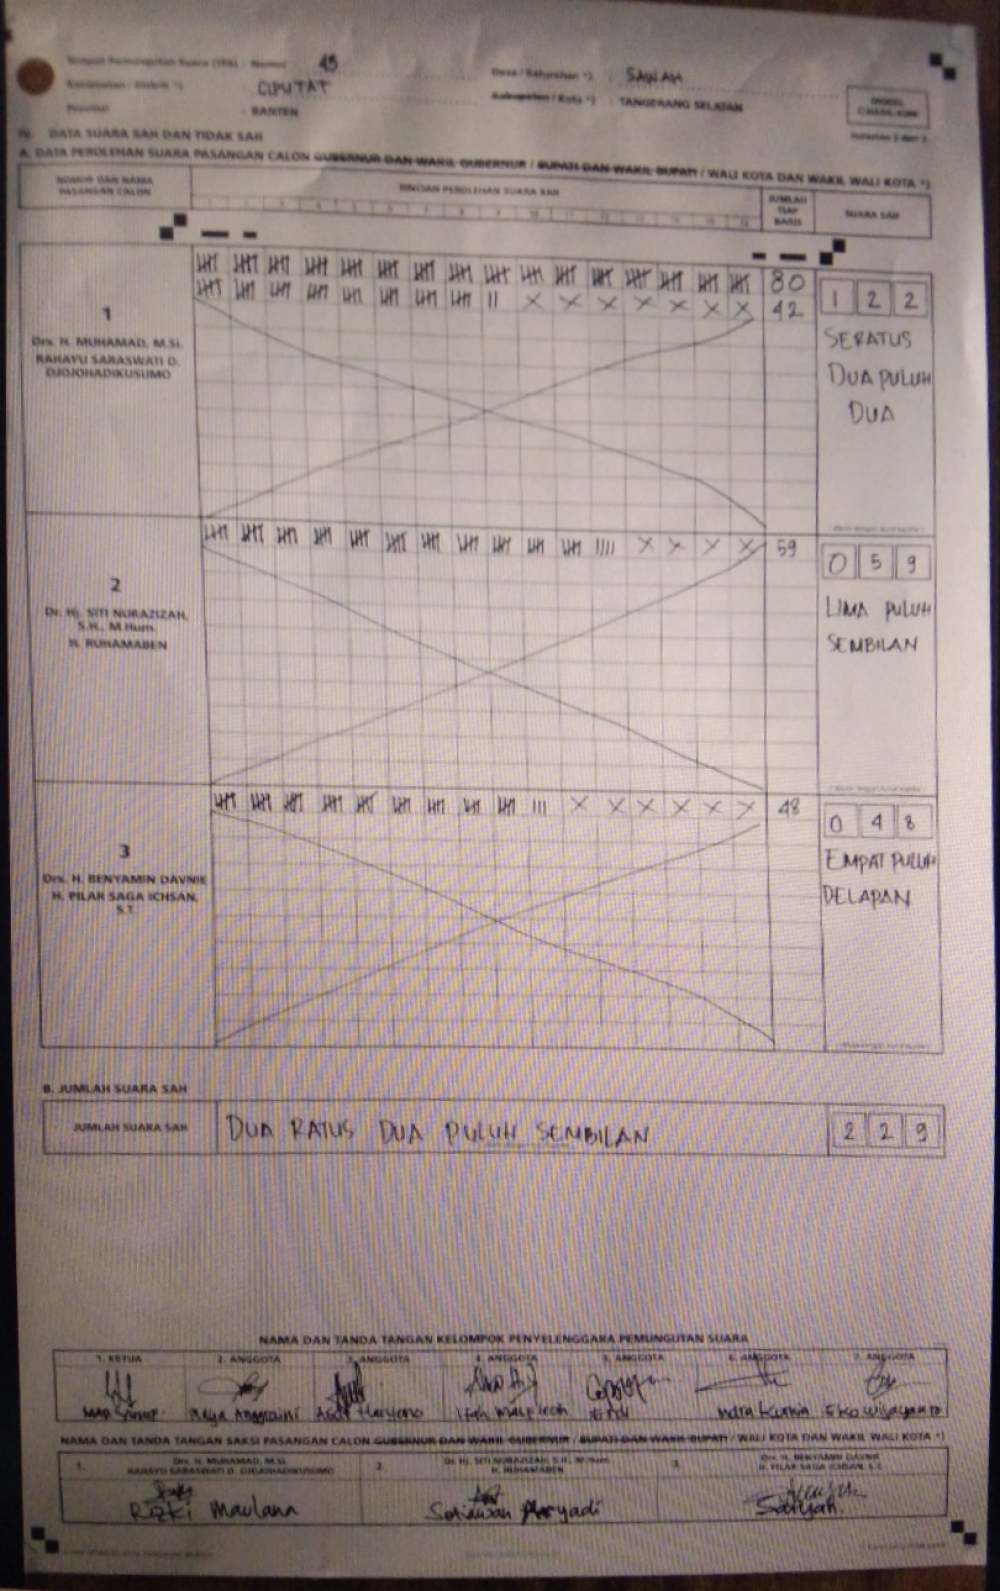 Tempat Pemungutan Suara (TPS) / Nomor : 45
Desa / Kelurahan *) : SAWAH
Kecamatan / Distrik *) : CIPUTAT
Kabupaten / Kota *) : TANGERANG SELATAN
Provinsi : BANTEN
MODEL
IV. DATA SUARA SAH DAN TIDAK SAH
A. DATA PEROLEHAN SUARA PASANGAN CALON GUBERNUR DAN WAKIL GUBERNUR / BUPATI DAN WAKIL BUPATI / WALI KOTA DAN WAKIL WALI KOTA *)
NOMOR DAN NAMA PASANGAN CALON
RINCIAN PEROLEHAN SUARA SAH
JUMLAH TIAP BARIS
SUARA SAH
1
Drs. H. MUHAMAD, M.Si.
RAHAYU SARASWATI D.
DJOJOHADIKUSUMO
80
X X X X X X X 42
1 2 2
SERATUS
DUA PULUH
DUA
2
Dr. Hj. SITI NURAZIZAH,
S.H., M.Hum.
H. RUHAMABEN
X X X X 59
0 5 9
LIMA PULUH
SEMBILAN
3
Drs. H. BENYAMIN DAVNIE
H. PILAR SAGA ICHSAN,
S.T.
X X X X X X 48
0 4 8
EMPAT PULUH
DELAPAN
B. JUMLAH SUARA SAH
JUMLAH SUARA SAH
DUA RATUS DUA PULUH SEMBILAN
2 2 9
NAMA DAN TANDA TANGAN KELOMPOK PENYELENGGARA PEMUNGUTAN SUARA
1. KETUA 2. ANGGOTA 3. ANGGOTA 4. ANGGOTA 5. ANGGOTA 6. ANGGOTA 7. ANGGOTA
Anggraini Haryono Endi Indra Kurnia Eko wijayanto
NAMA DAN TANDA TANGAN SAKSI PASANGAN CALON GUBERNUR DAN WAKIL GUBERNUR / BUPATI DAN WAKIL BUPATI / WALI KOTA DAN WAKIL WALI KOTA *)
1. Drs. H. MUHAMAD, M.Si.
RAHAYU SARASWATI D. DJOJOHADIKUSUMO
2. Dr. Hj. SITI NURAZIZAH, S.H., M.Hum.
H. RUHAMABEN
3. Drs. H. BENYAMIN DAVNIE
H. PILAR SAGA ICHSAN, S.T.
Rizki Maulana
Setiawan